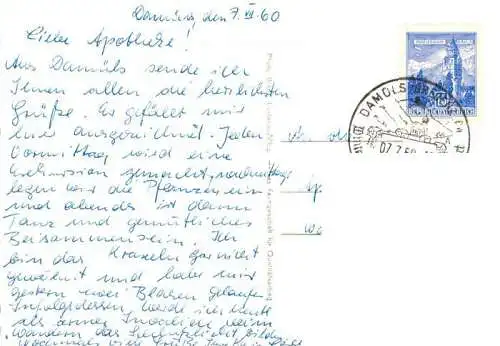 Damüls, den 7. VII. 60
Liebe Apotheke!
Aus Damüls sende ich
Ihnen allen die herzlichsten
Grüße. Es gefällt mir
hier ausgezeichnet. Jeden
Vormittag wird eine
Exkursion gemacht, nachmittags
legen wir die Pflanzen ein
und abends ist dann
Tanz und gemütliches
Beisammensein. Ich
bin das Kraxeln gar nicht
gewöhnt und habe mir
gestern zwei Blasen gelaufen
Infolgedessen werde ich heute
als armer beim
wandern das Schlußlicht bilden
Nochmals viele Grüße
An die
Ap
WO
DAMÜLS
07.7.60